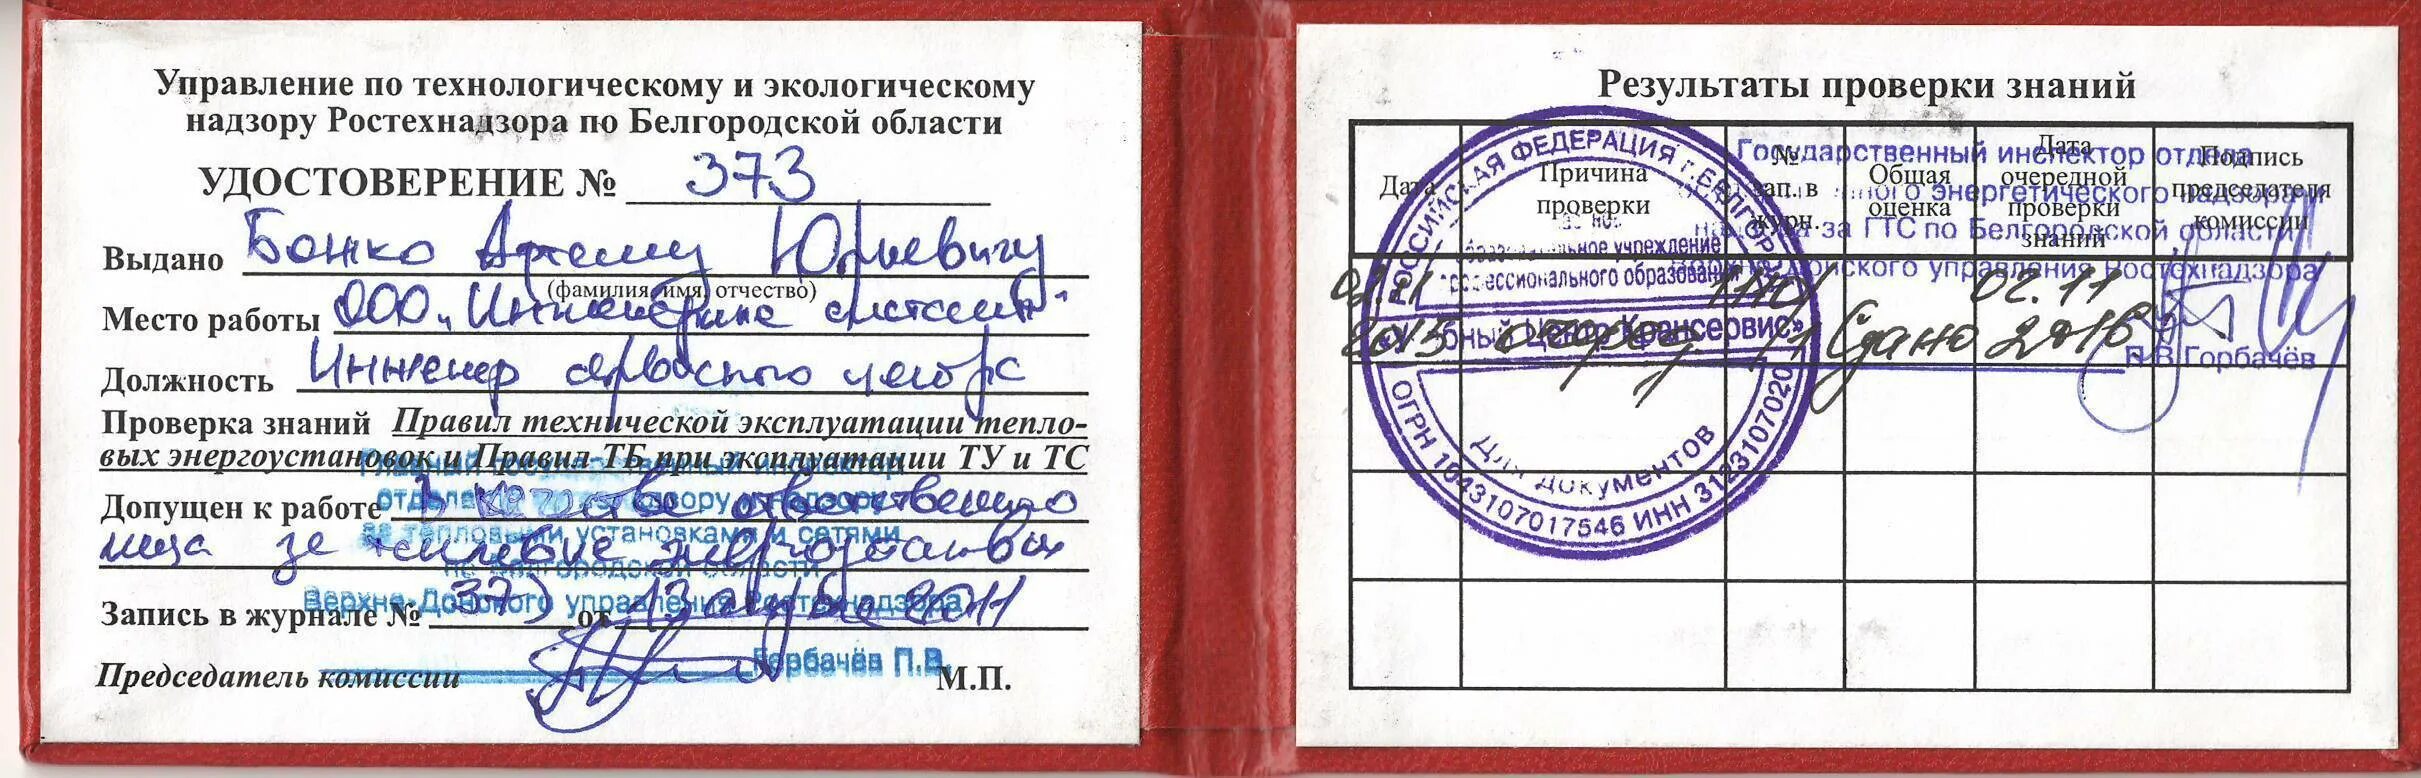 Управление по технологическому и экологическому
надзору Ростехнадзора по Белгородской области
УДОСТОВЕРЕНИЕ № 373
Выдано Божко Артему Юрьевичу
(фамилия, имя, отчество)
Место работы ООО "Инженерные системы"
Должность Инженер сервисного центра
Проверка знаний Правил технической эксплуатации тепло-
вых энергоустановок и Правил ТБ при эксплуатации ТУ и ТС
Главный государственный инспектор
Допущен к работе в качестве ответственного
отдела надзору
за тепловыми установками и сетями
лица за тепловые
по Белгородской области
Верхне-Донского управления Ростехнадзора
Запись в журнале № 373 от 13
Горбачёв П.В.
Председатель комиссии М.П.
Результаты проверки знаний
Дата
Причина проверки
№ зап. в журн.
Общая оценка
Дата очередной проверки знаний
Подпись председателя комиссии
Государственный инспектор отдела
энергетического надзора и
за ГТС по Белгородской области
Донского управления Ростехнадзора
П.В Горбачёв
02.11 2015 Сдано 02.11 2016
РОССИЙСКАЯ ФЕДЕРАЦИЯ г.БЕЛГОРОД
образовательное учреждение
профессионального образования
«Учебный Центр Крансервис»
Для документов
ОГРН 1043107017546 ИНН 3123107020